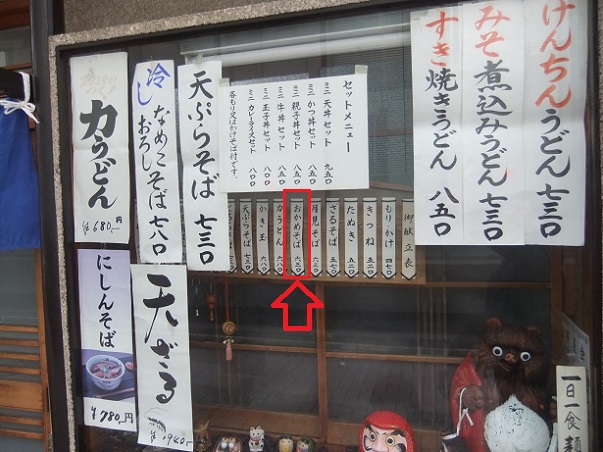 けんちんうどん 七三〇
みそ煮込みうどん 七三〇
すき焼きうどん 八五〇
セットメニュー
ミニ 天丼セット 九五〇
ミニ かつ丼セット 八五〇
ミニ 親子丼セット 八五〇
ミニ 牛丼セット 八五〇
ミニ 玉子丼セット 八〇〇
ミニ カレーライスセット 八五〇
各もり又はかけそば付です。
天ぷらそば 七三〇
冷し なめこそば おろしそば 七八〇
力うどん
¥680円
御献立表
もりかけ 四七〇
きつね 五二〇
たぬき 五二〇
ざるそば 五七〇
月見そば 六三〇
おかめそば 六三〇
力うどん 六八〇
かき玉 六三〇
天ぷらそば 七三〇
にしんそば
¥780円
天ざる
¥940円
一日一食麺